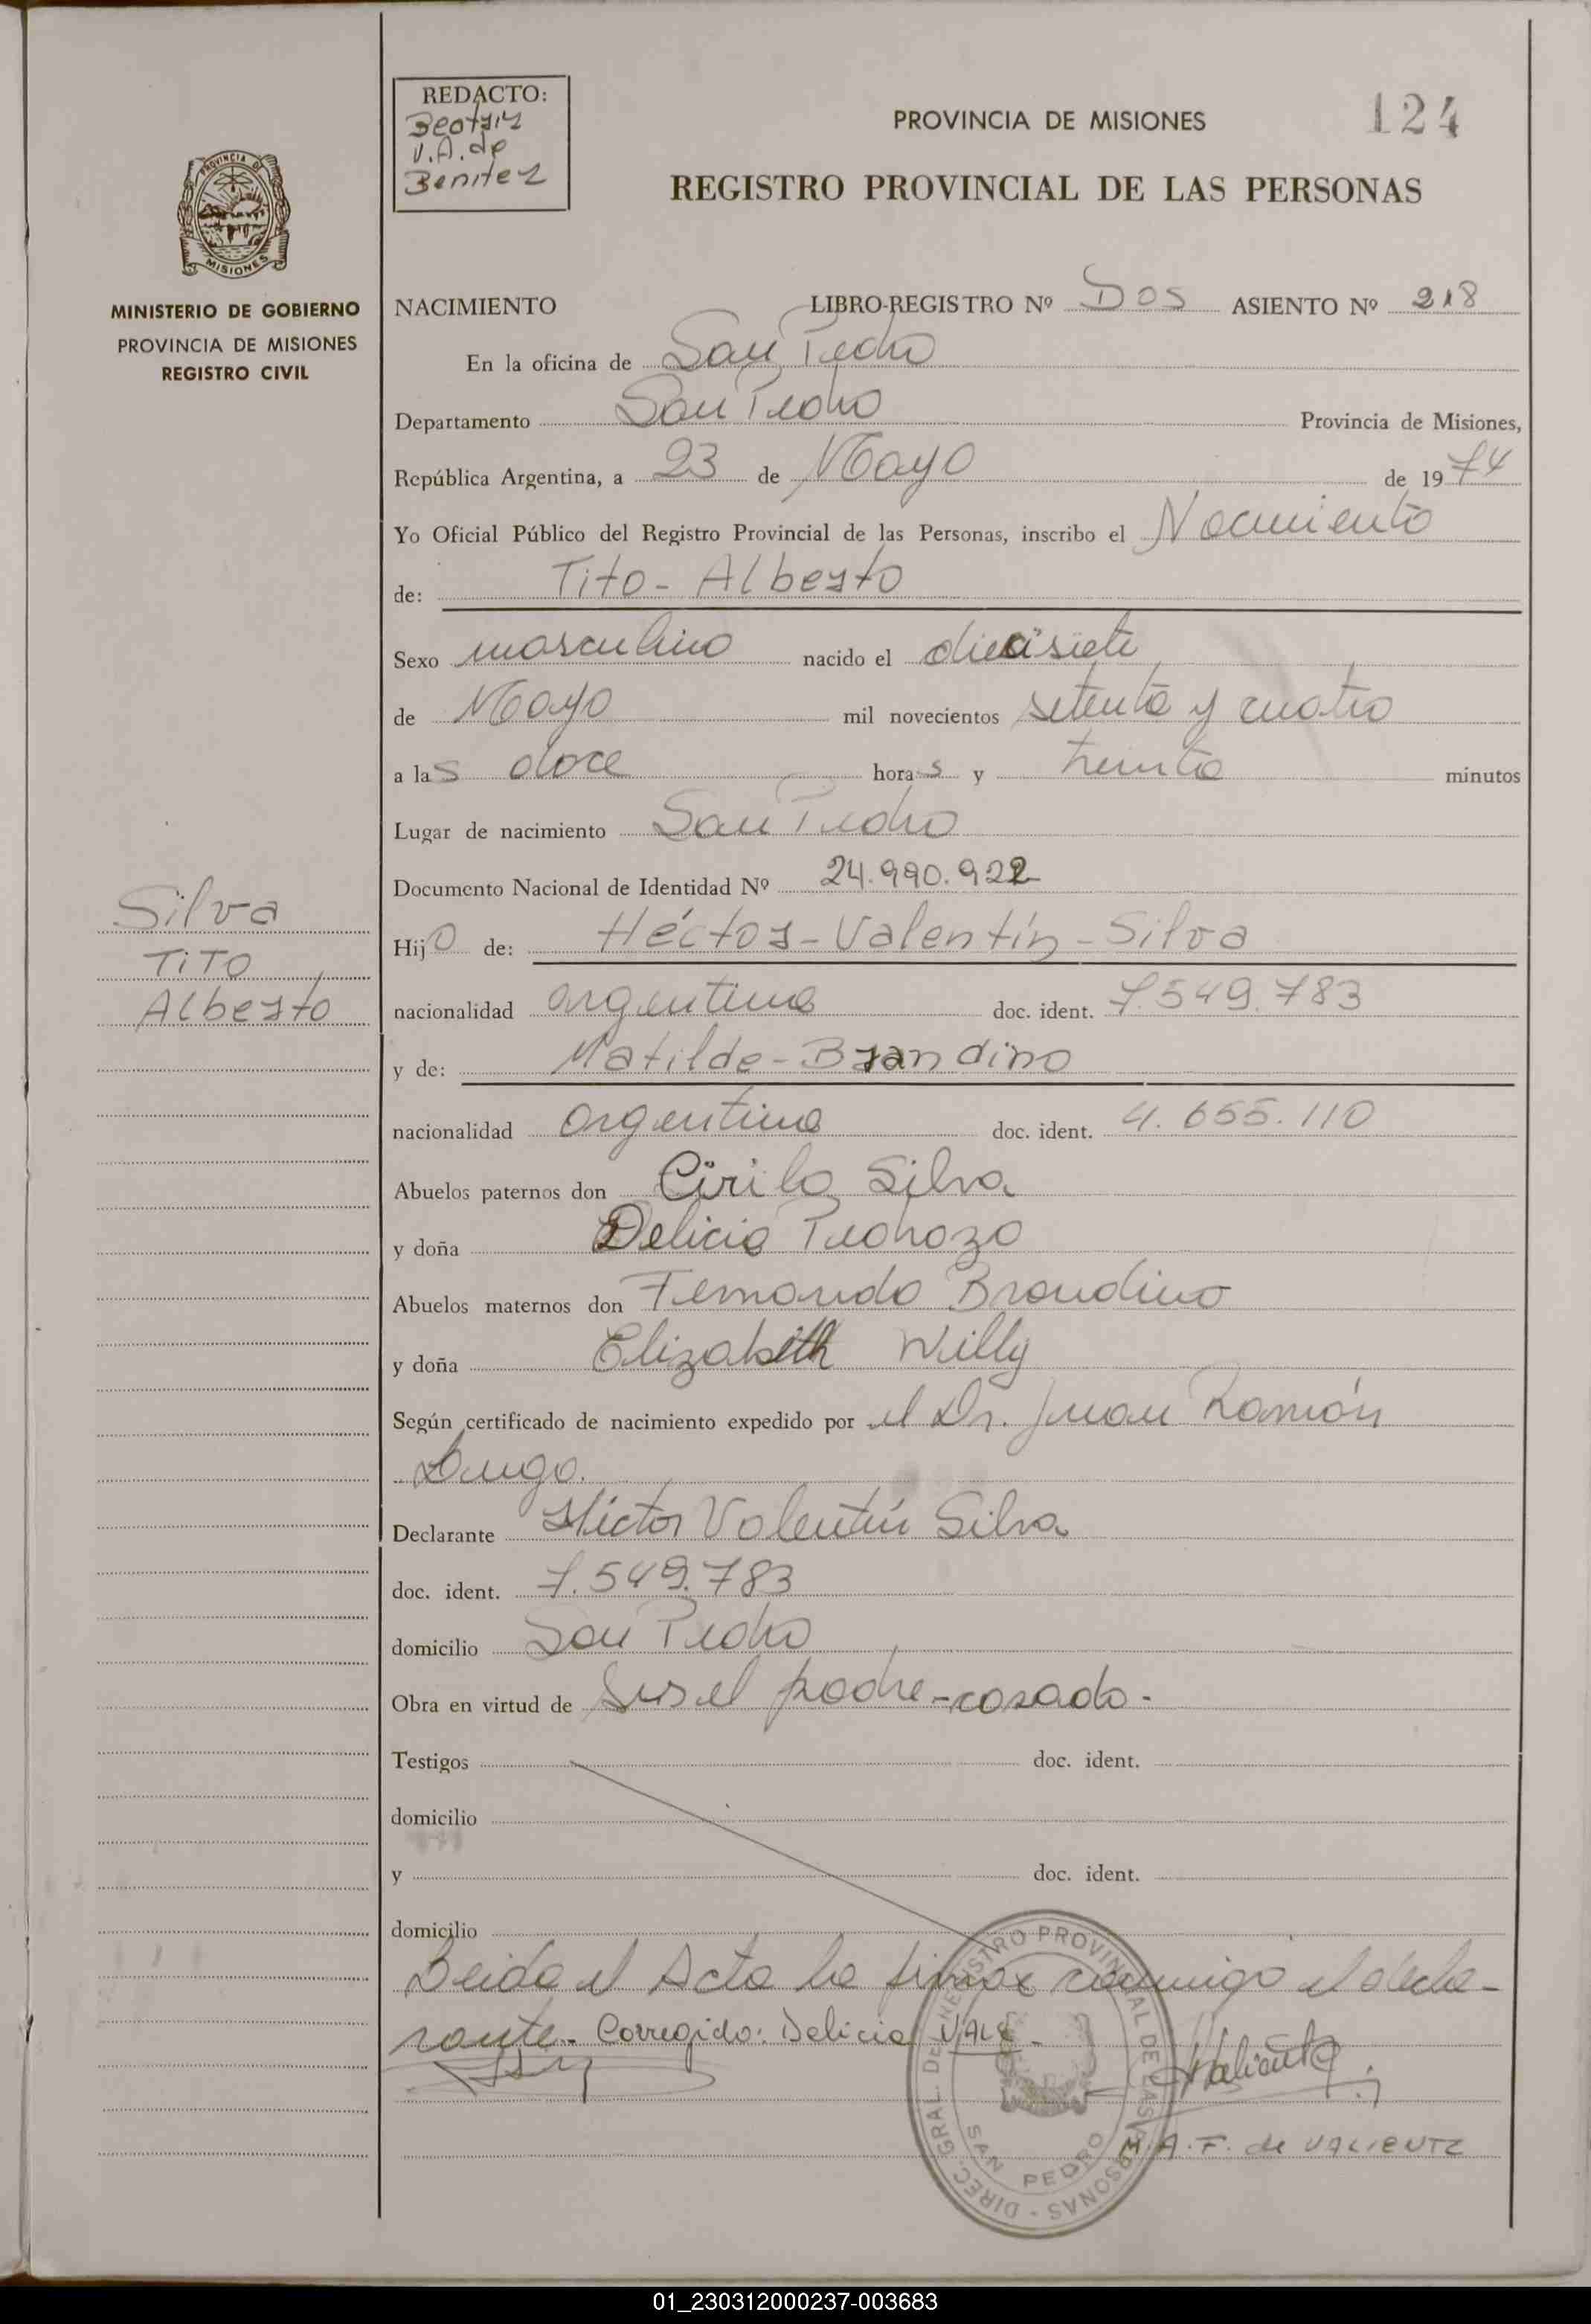 REDACTO:
Beatriz
V.A. de
Benitez
PROVINCIA DE MISIONES
124
REGISTRO PROVINCIAL DE LAS PERSONAS
PROVINCIA DE
MISIONES
MINISTERIO DE GOBIERNO
PROVINCIA DE MISIONES
REGISTRO CIVIL
NACIMIENTO LIBRO-REGISTRO Nº Dos ASIENTO Nº 218
En la oficina de San Pedro
Departamento San Pedro Provincia de Misiones,
República Argentina, a 23 de Mayo de 1974
Yo Oficial Público del Registro Provincial de las Personas, inscribo el Nacimiento
de: Tito-Alberto
Sexo masculino nacido el diecisiete
de Mayo mil novecientos setenta y cuatro
a las doce horas y treinta minutos
Lugar de nacimiento San Pedro
Documento Nacional de Identidad Nº 24.990.922
Silva
Tito
Alberto
Hijo de: Héctor-Valentín-Silva
nacionalidad argentina doc. ident. 7.549.783
y de: Matilde-Brandino
nacionalidad argentina doc. ident. 4.655.110
Abuelos paternos don Cirilo Silva
y doña Delicia Pedrozo
Abuelos maternos don Fernando Brandino
y doña Elizabeth Willy
Según certificado de nacimiento expedido por el Dr. Juan Ramón
Lugo.
Declarante Héctor Valentín Silva
doc. ident. 7.549.783
domicilio San Pedro
Obra en virtud de Ser el padre-casado-
Testigos doc. ident.
domicilio
y doc. ident.
domicilio
Leida el Acta la firma conmigo el decla-
rante. Corregido: Delicia VALE.-
Valiente
M.A.F. de VALIENTE
DIREC. GRAL. DE REGISTRO PROVINCIAL DE LAS PERSONAS -
SAN PEDRO
01_230312000237-003683